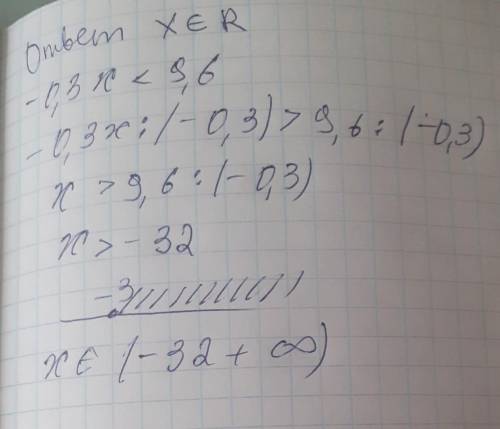 Ответ X∈R
-0,3x < 9,6
-0,3x:(-0,3)>9,6:(-0,3)
x>9,6:(-0,3)
x>-32
-3
x∈(-32+∞)